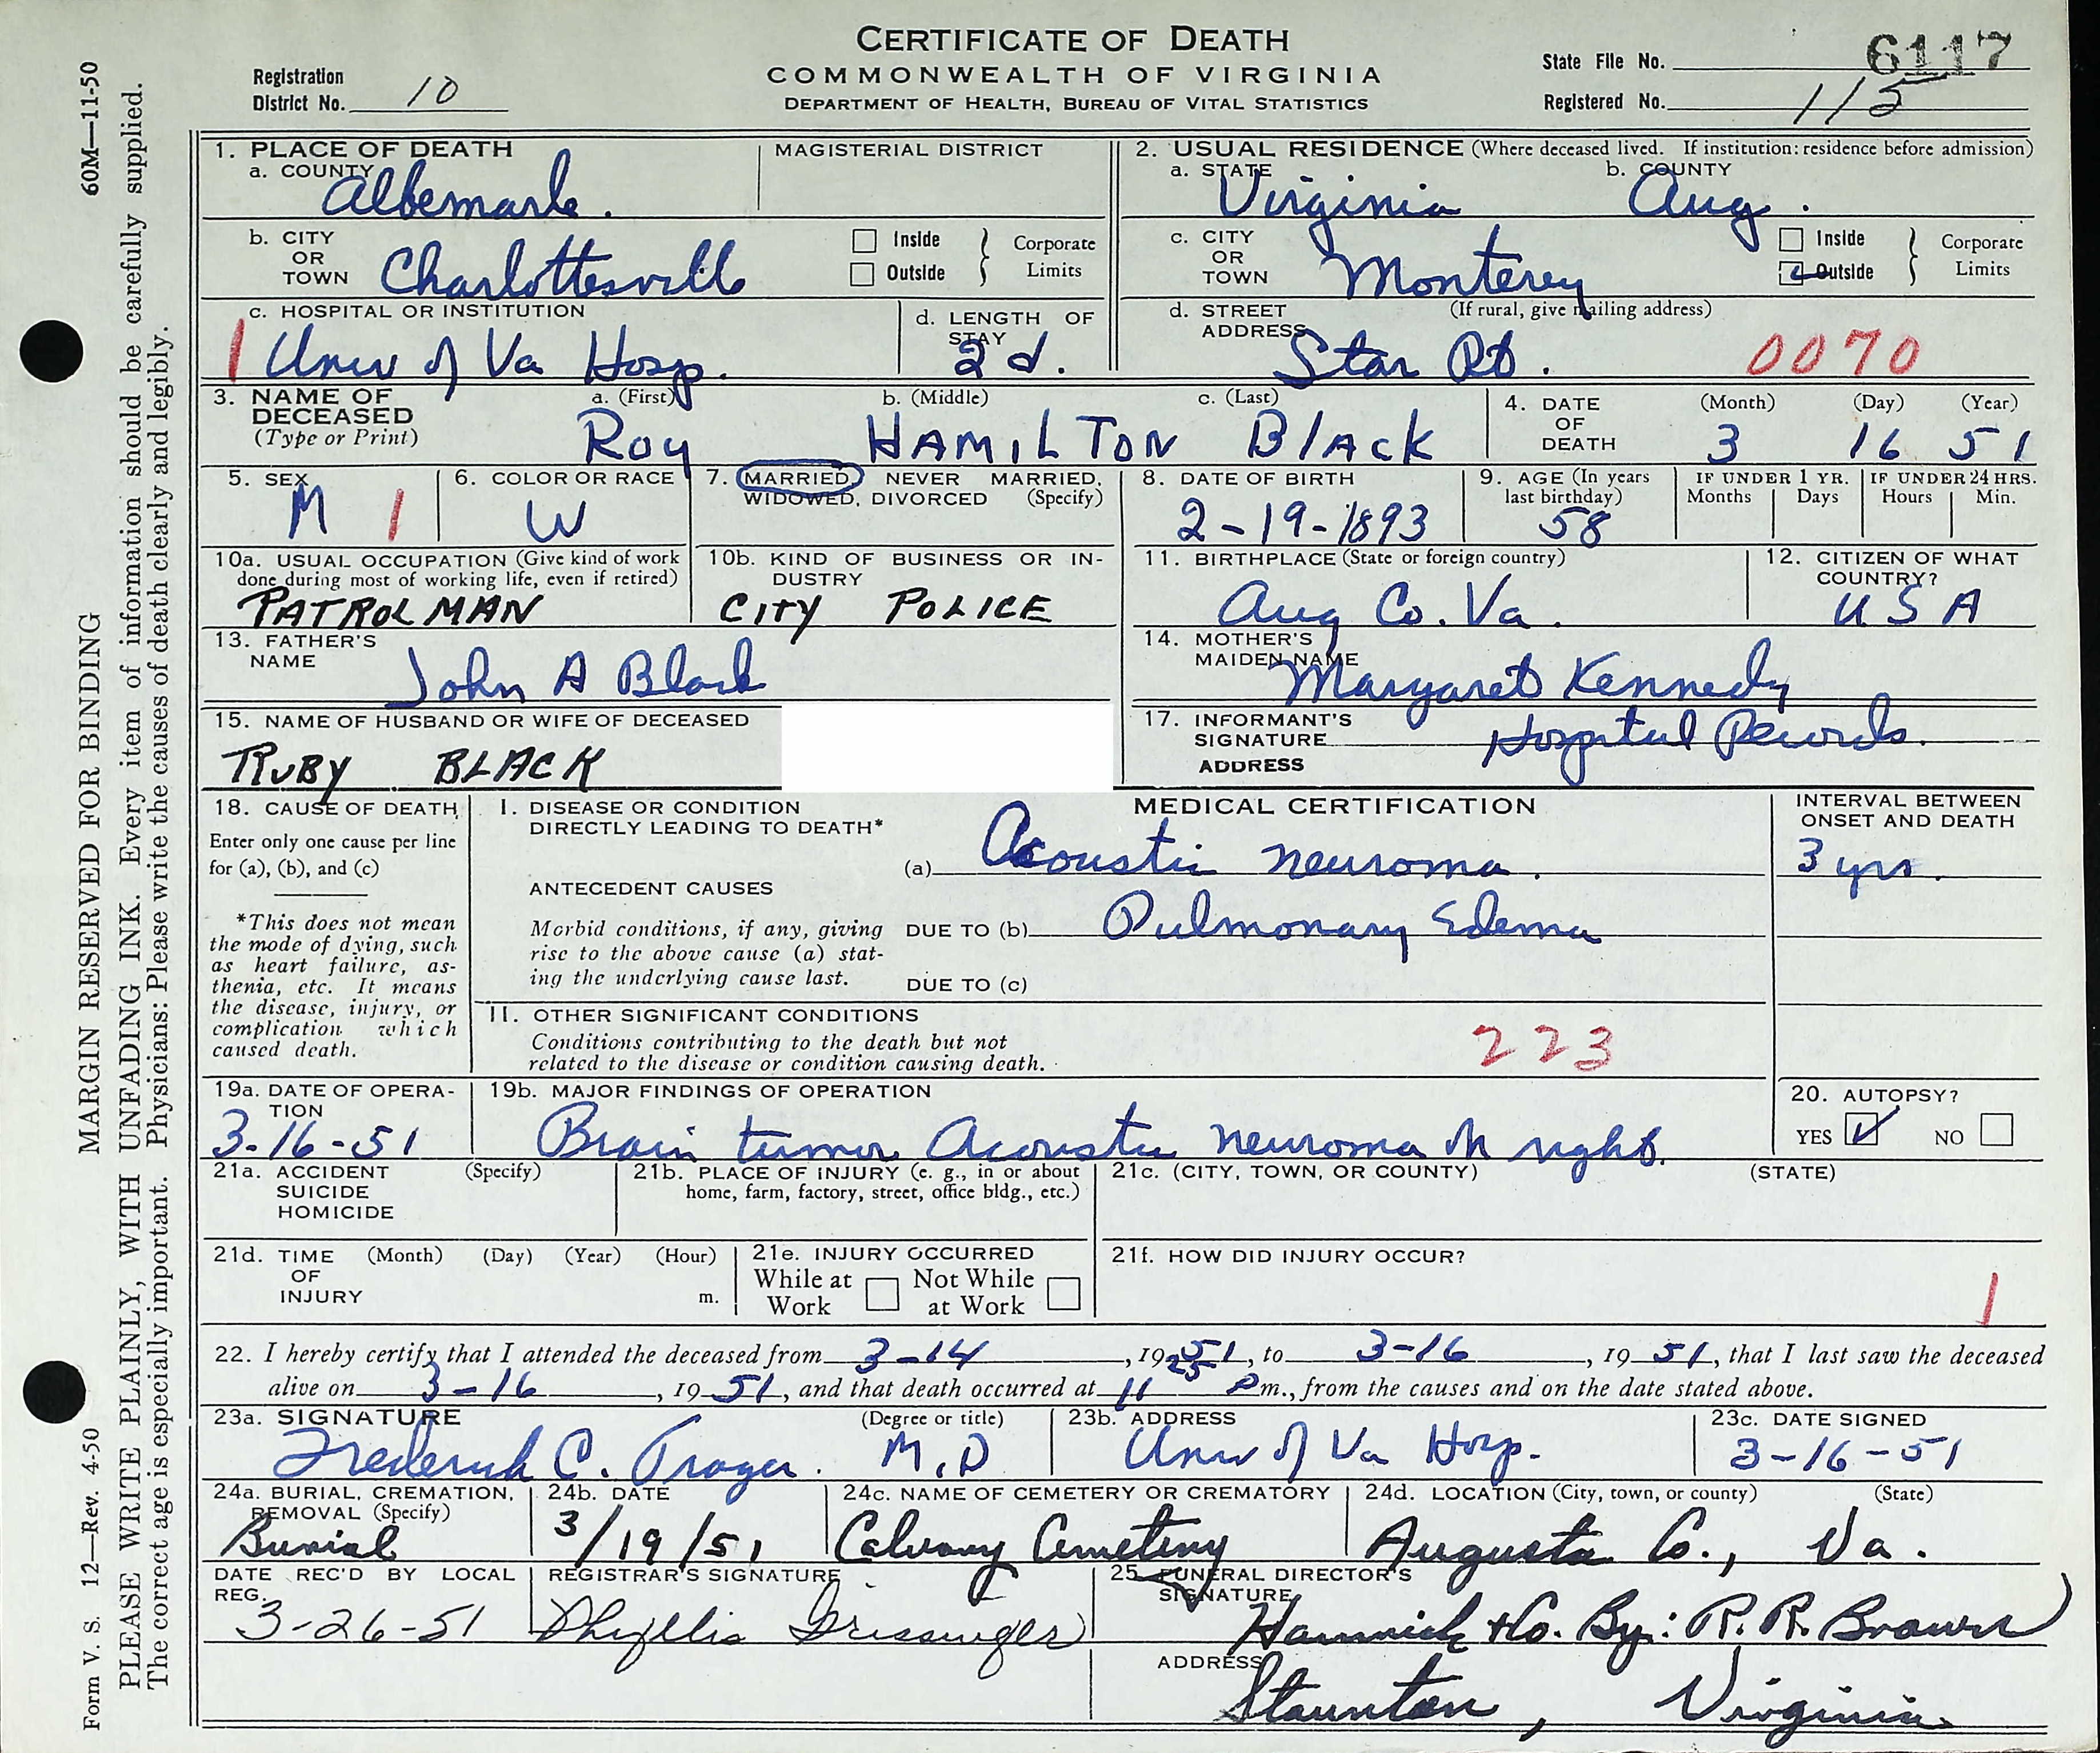 CERTIFICATE OF DEATH
COMMONWEALTH OF VIRGINIA
DEPARTMENT OF HEALTH, BUREAU OF VITAL STATISTICS
Registration District No. 10
State File No. 6117
Registered No. 115
60M—11-50
MARGIN RESERVED FOR BINDING
PLEASE WRITE PLAINLY, WITH UNFADING INK. Every item of information should be carefully supplied.
The correct age is especially important. Physicians: Please write the causes of death clearly and legibly.
Form V. S. 12—Rev. 4-50
1. PLACE OF DEATH
a. COUNTY Albemarle.
MAGISTERIAL DISTRICT
2. USUAL RESIDENCE (Where deceased lived. If institution: residence before admission)
a. STATE Virginia b. COUNTY Aug.
b. CITY OR TOWN Charlottesville
Inside Outside } Corporate Limits
c. CITY OR TOWN Monterey
Inside Outside } Corporate Limits
c. HOSPITAL OR INSTITUTION
1 Univ of Va Hosp.
d. LENGTH OF STAY 2d.
d. STREET ADDRESS (If rural, give mailing address)
Star Rt. 0070
3. NAME OF DECEASED (Type or Print)
a. (First) b. (Middle) c. (Last)
Roy HAMILTON BLACK
4. DATE OF DEATH (Month) (Day) (Year)
3 16 51
5. SEX M 1
6. COLOR OR RACE W
7. MARRIED, NEVER MARRIED, WIDOWED, DIVORCED (Specify)
8. DATE OF BIRTH 2-19-1893
9. AGE (In years last birthday) 58
IF UNDER 1 YR. Months Days
IF UNDER 24 HRS. Hours Min.
10a. USUAL OCCUPATION (Give kind of work done during most of working life, even if retired)
PATROLMAN
10b. KIND OF BUSINESS OR INDUSTRY
CITY POLICE
11. BIRTHPLACE (State or foreign country)
Aug Co. Va.
12. CITIZEN OF WHAT COUNTRY?
USA
13. FATHER'S NAME John A Black
14. MOTHER'S MAIDEN NAME Margaret Kennedy
15. NAME OF HUSBAND OR WIFE OF DECEASED
RUBY BLACK
17. INFORMANT'S SIGNATURE Hospital Records.
ADDRESS
18. CAUSE OF DEATH
Enter only one cause per line for (a), (b), and (c)
*This does not mean the mode of dying, such as heart failure, asthenia, etc. It means the disease, injury, or complication which caused death.
MEDICAL CERTIFICATION
I. DISEASE OR CONDITION DIRECTLY LEADING TO DEATH*
(a) Acoustic neuroma.
INTERVAL BETWEEN ONSET AND DEATH
3 yrs.
ANTECEDENT CAUSES
Morbid conditions, if any, giving rise to the above cause (a) stating the underlying cause last.
DUE TO (b) Pulmonary Edema
DUE TO (c)
II. OTHER SIGNIFICANT CONDITIONS
Conditions contributing to the death but not related to the disease or condition causing death.
223
19a. DATE OF OPERATION
3-16-51
19b. MAJOR FINDINGS OF OPERATION
Brain tumor Acoustic neuroma on right.
20. AUTOPSY?
YES NO
21a. ACCIDENT SUICIDE HOMICIDE (Specify)
21b. PLACE OF INJURY (e. g., in or about home, farm, factory, street, office bldg., etc.)
21c. (CITY, TOWN, OR COUNTY) (STATE)
21d. TIME OF INJURY (Month) (Day) (Year) (Hour) m.
21e. INJURY OCCURRED
While at Work Not While at Work
21f. HOW DID INJURY OCCUR?
1
22. I hereby certify that I attended the deceased from 3-14, 1951, to 3-16, 1951, that I last saw the deceased
alive on 3-16, 1951, and that death occurred at 11 25 Pm., from the causes and on the date stated above.
23a. SIGNATURE (Degree or title)
Frederick C. M.D
23b. ADDRESS
Univ of Va Hosp.
23c. DATE SIGNED
3-16-51
24a. BURIAL, CREMATION, REMOVAL (Specify)
Burial
24b. DATE
3/19/51
24c. NAME OF CEMETERY OR CREMATORY
Calvary Cemetery
24d. LOCATION (City, town, or county) (State)
Augusta Co., Va.
DATE REC'D BY LOCAL REG.
3-26-51
REGISTRAR'S SIGNATURE
Phyllis
25. FUNERAL DIRECTOR'S SIGNATURE
& Co. By: R. R. Brown
ADDRESS
Staunton, Virginia